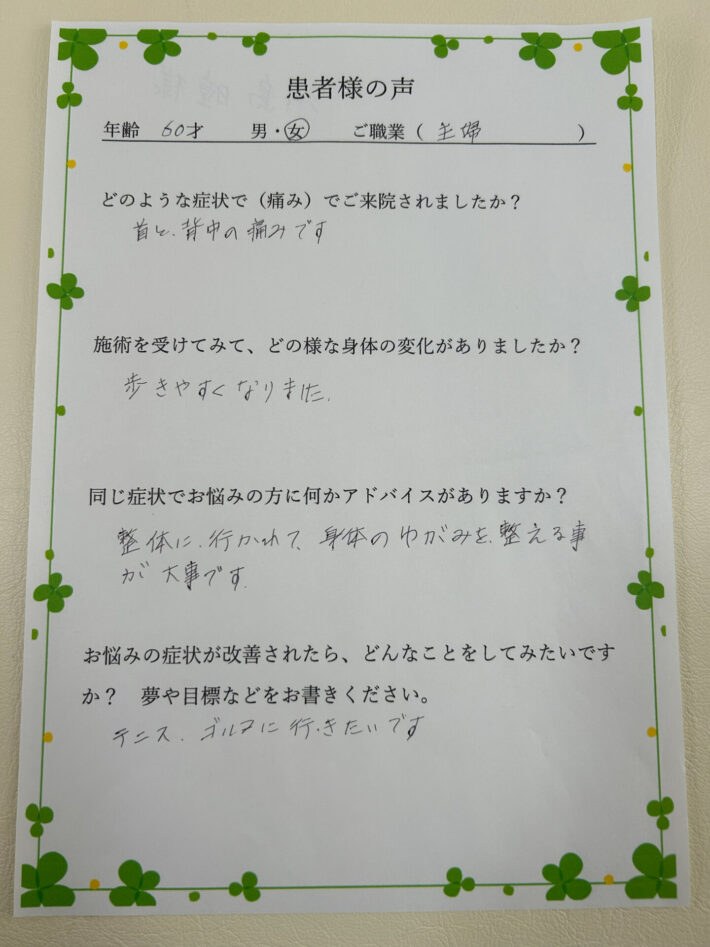 患者様の声
年齢 60才 男・女 ご職業（ 主婦 ）
どのような症状で（痛み）でご来院されましたか？
首と、背中の痛みです
施術を受けてみて、どの様な身体の変化がありましたか？
歩きやすくなりました.
同じ症状でお悩みの方に何かアドバイスがありますか？
整体に、行かれて、身体のゆがみを、整える事
が 大事です.
お悩みの症状が改善されたら、どんなことをしてみたいです
か？ 夢や目標などをお書きください。
テニス、ゴルフに行きたいです